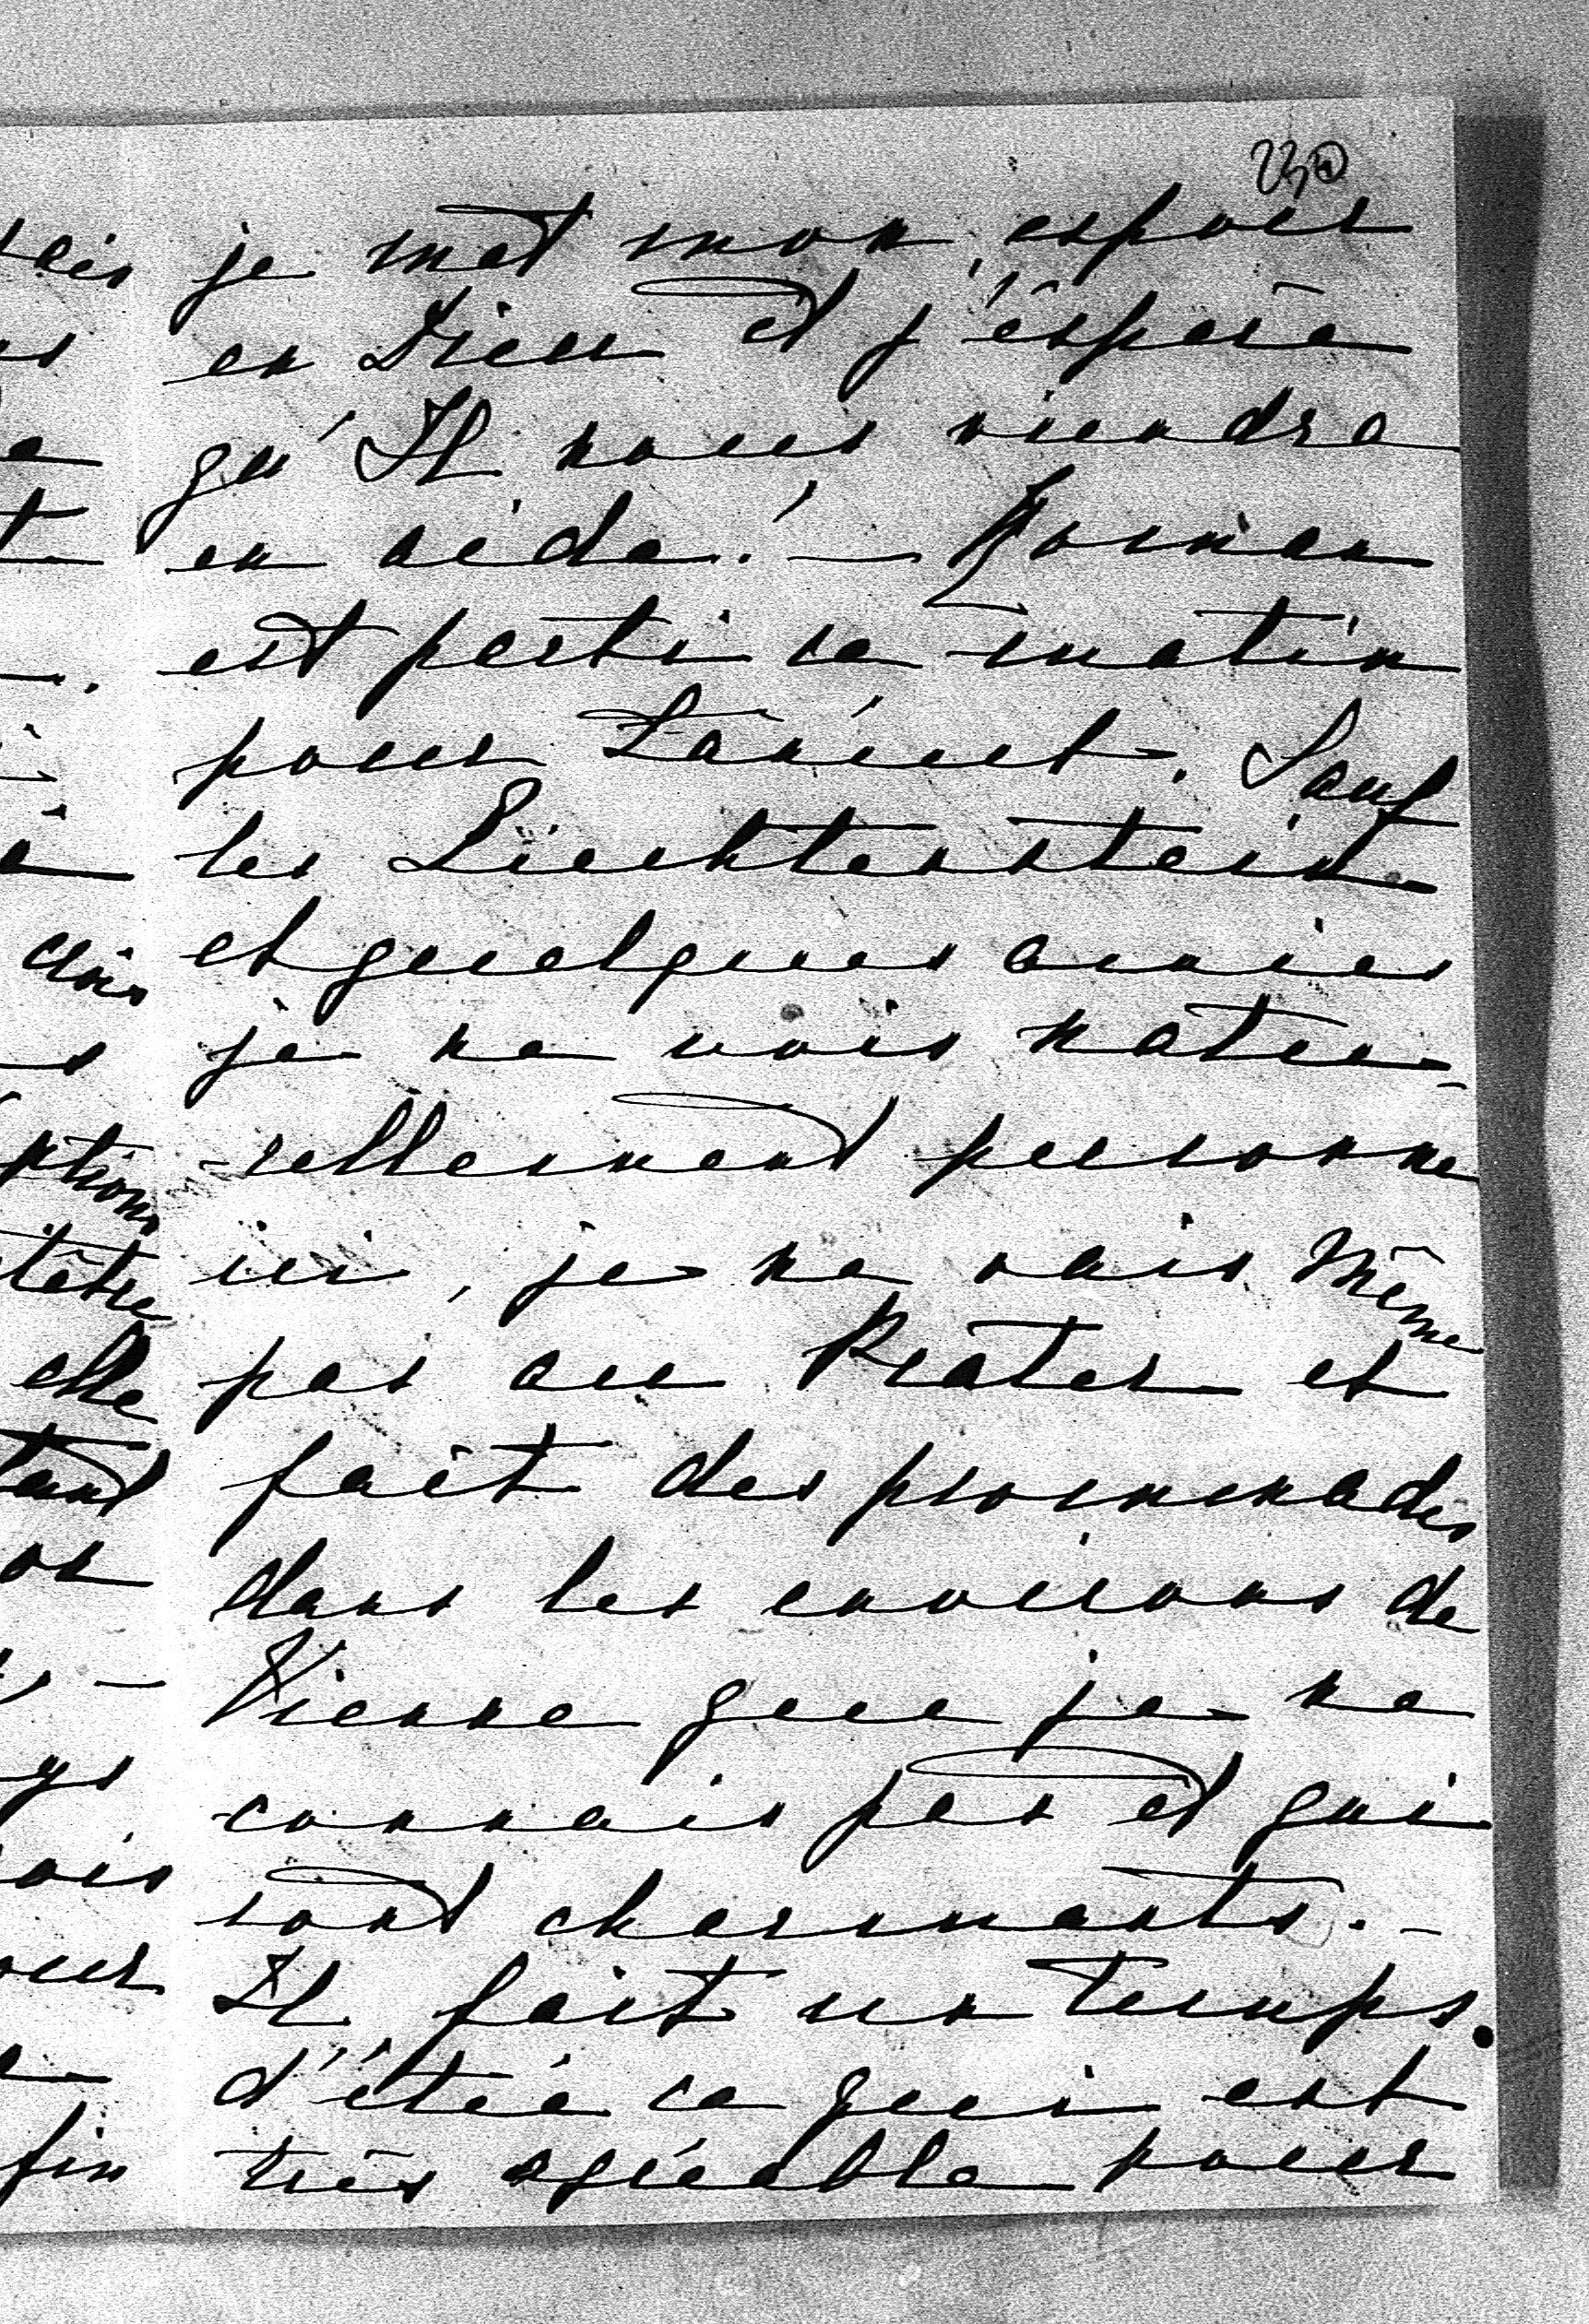 23
je met mon espoir
en Dieu et j'éspère
qu'Il nous viendra
en aide! —
est parti ce matin
pour Lancut. Sauf
les Liechtenstein
et quelques amies
je ne vois natu-
-rellement personne
ici, je ne vais même
pas au Prater et
fait des promenades
dans les environs de
Vienne que je ne
connais pas et qui
sont charmants. —
Il fait un temps
d'étée ce qui est
très agréable pour
ptions
elle
tant
ois
our
fin